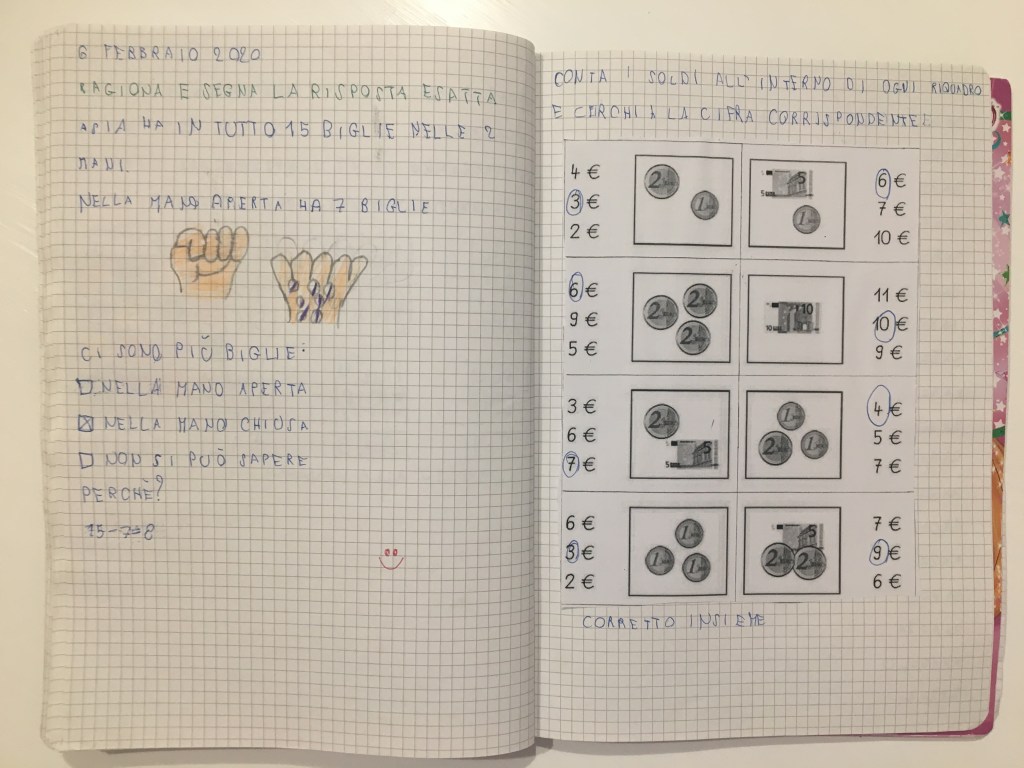 6 FEBBRAIO 2020
RAGIONA E SEGNA LA RISPOSTA ESATTA
ASIA HA IN TUTTO 15 BIGLIE NELLE 2
MANI.
NELLA MANO APERTA HA 7 BIGLIE
CI SONO PIÙ BIGLIE:
NELLA MANO APERTA
NELLA MANO CHIUSA
NON SI PUÒ SAPERE
PERCHÈ?
15-7=8
CONTA I SOLDI ALL'INTERNO DI OGNI RIQUADRO
E CERCHIA LA CIFRA CORRISPONDENTE:
4 €
3 €
2 €
2
1
5
5
1
6 €
7 €
10 €
6 €
9 €
5 €
2
2
2
10
10
11 €
10 €
9 €
3 €
6 €
7 €
2
5
5
1
2
1
4 €
5 €
7 €
6 €
3 €
2 €
1
1
1
5
2
2
7 €
9 €
6 €
CORRETTO INSIEME